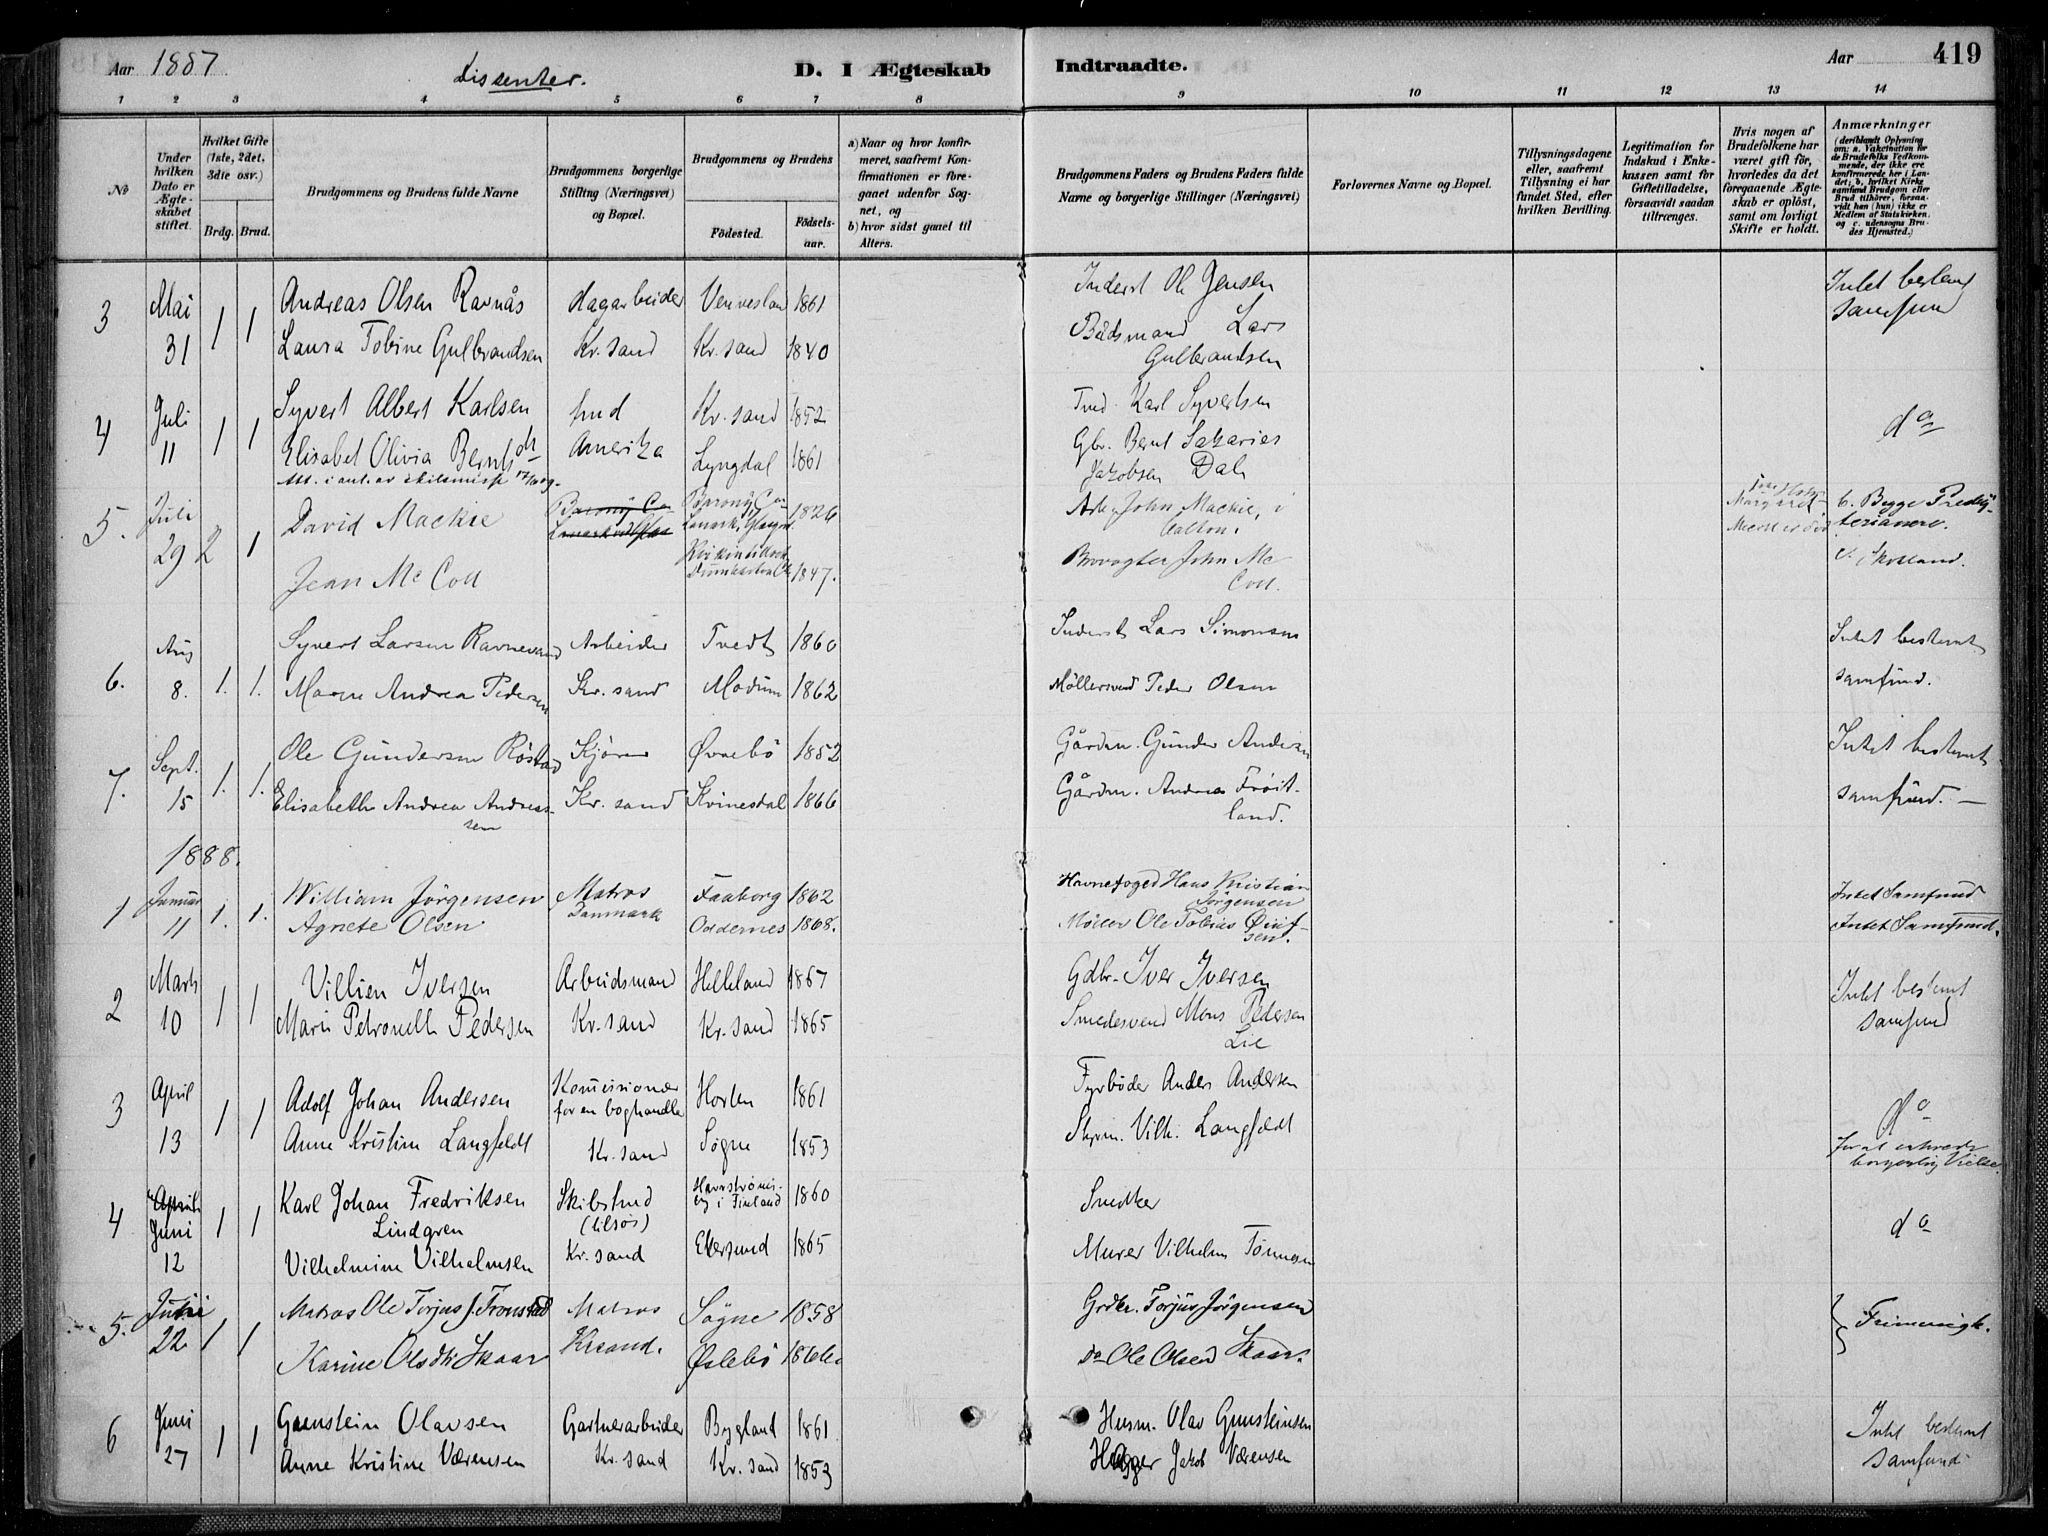 Aar 1887
Dissenter.
D. I Ægteskab Indtraadte.
Aar
419
1 2 3 4 5 6 7 8 9 10 11 12 13 14
No
Under hvilken Dato er Ægteskabet stiftet.
Hvilket Gifte (1ste, 2det, 3die osv.)
Brdg. Brud.
Brudgommens og Brudens fulde Navne
Brudgommens borgerlige Stilling (Næringsvei) og Bopæl.
Brudgommens og Brudens
Födested.
Födselsaar.
a) Naar og hvor konfirmeret, saafremt Konfirmationen er foregaaet udenfor Sognet, og
b) hvor sidst gaaet til Alters.
Brudgommens Faders og Brudens Faders fulde Navne og borgerlige Stillinger (Næringsvei)
Forlovernes Navne og Bopæl.
Tillysningsdagene eller, saafremt Tillysning ei har fundet Sted, efter hvilken Bevilling.
Legitimation for Indskud i Enkekassen samt for Giftetilladelse, forsaavidt saadan tiltrænges.
Hvis nogen af Brudefolkene har været gift för, hvorledes da det foregaaende Ægteskab er oplöst, samt om lovligt Skifte er holdt.
Anmærkninger (deriblandt Oplysning om: a. Vakcination for de Brudefolks Vedkommende, der ikke ere konfirmerede her i Landet; b. hvilket Kirkesamfund Brudgom eller Brud tilhörer, forsaavidt han (hun) ikke er Medlem af Statskirken, og c. udensogns Brudes Hjemsted.)
3 Mai 1 1 Andreas Olsen Ravnås dagarbeider 1861 Inderst Ole Jensen Intet
31 Laura Tobine Gulbrandsen Kr. sand Kr. sand 1840 Bådsmand Lars samfund
Gulbrandsen
4 Juli 1 1 Syvert Albert Karlsen Kr. sand 1852 Karl Syvertsen do
11 Elisabet Olivia Amerika Lyngdal 1861 Gbr. Bernt Sakarias
Jakobsen Dal
5. Juli 2 1 David Mackie Barony 1826 John Mackie, i b. Begge
29 Lanark, Calton. Margaret
Jean Mc Coll 1847. John Mc c. Skotland.
Coll.
6. Aug 1. 1. Syvert Larsen Arbeider Tvedt 1860 Inderst Lars Simonsen Intet bestemt
8. Andrea Pedersen Kr. sand Modum 1862 Möllersvend Peder Olsen samfund.
7. Sept. 1. 1. Ole Gundersen Röstad Kjörer Øvrebö 1852 Gårdm. Gunder Andersen Intet bestemt
15 Elisabeth Andrea Andreas- Kr. sand Kvinesdal 1866 Gårdm. Andreas Fröit- samfund. —
sen land.
1888.
1 Januar 1. 1. William Jörgensen Matros Faaborg 1862 Havnefoged Hans Kristian Intet Samfund
Danmark Jörgensen
11 Agnete Olsen Oddernes 1868. Möller Ole Tobias Intet Samfund.
sen.
2 Marts 1 1 Villien Iversen Arbeidsmand Helleland 1867 Gdbr. Iver Iversen Intet bestemt
10 Marie Petronelle Pedersen Kr. sand Kr. sand 1865 Smedesvend Mons Pedersen samfund
Lie
3 April 1 1 Adolf Johan Andersen Komissionær Horten 1861 Fyrböder Anders Andersen do
for en boghandler
13 Anne Kristine Langfeldt Kr. sand Søgne 1853 Vilh. Langfeldt
borgerlig Vielse
4 April 1 1 Karl Johan Fredriksen Skibstmd i Finland 1860 Snedker do
Juni Lindgren (tilsøs)
12 Vilhelmine Vilhelmsen Kr. sand Ekersund 1865 Murer Vilhelm Tönnesen
5. Juni 1 1 Matros Ole Torjus J. Tronstad Matros Søgne 1858 Grdbr. Torjus Jörgensen
22 Karine Olsdtr Skaar Krsand. Øslebö Do Ole Olsen Skaar.
6 Juni 1 1 Gunstein Olavsen Gartnerarbeider Bygland 1861 Husm. Olav Gunsteinsen Intet bestemt
27 Anne Kristine Værensen Kr. sand Kr. sand 1853 Jakob Værensen samfund